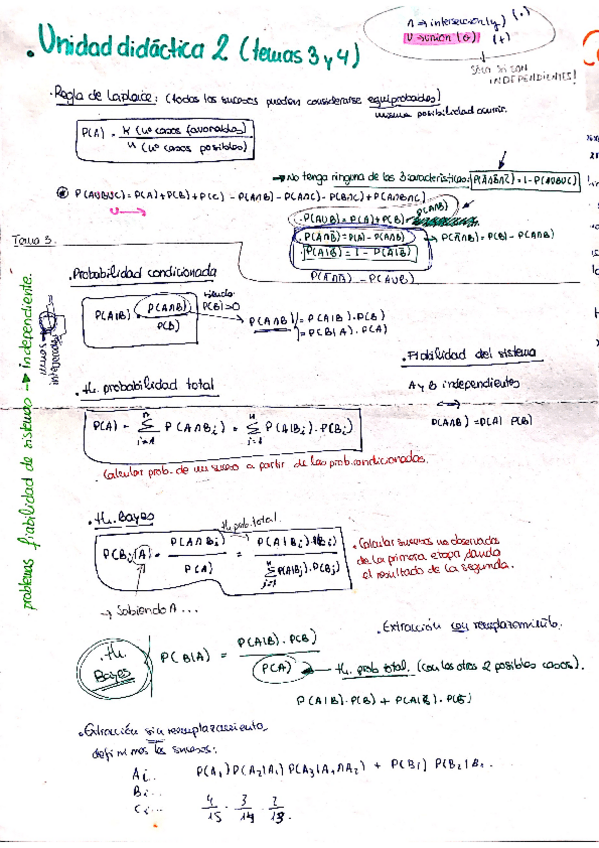 ∩ → intersección (y) (·)
U → unión (o) (+)
Sólo si son
INDEPENDIENTES!
· Unidad didáctica 2 (temas 3 y 4)
· Regla de Laplace: (todos los sucesos pueden considerarse equiprobables)
misma posibilidad ocurrir.
P(A) = K (nº casos favorables) / n (nº casos posibles)
→ No tenga ninguna de las 3 características: P(A̅∩B̅∩C̅) = 1 - P(AUBUC)
P(AUBUC) = P(A) + P(B) + P(C) - P(A∩B) - P(A∩C) - P(B∩C) + P(A∩B∩C)
U →
P(AUB) = P(A) + P(B) - P(A∩B)
P(A∩B̅) = P(A) - P(A∩B) → P(A̅∩B) = P(B) - P(A∩B)
P(A̅|B) = 1 - P(A|B)
Tema 3.
· Probabilidad condicionada
P(A|B) = P(A∩B) / P(B)
siendo
P(B) > 0
P(A∩B) = P(A|B) · P(B)
= P(B|A) · P(A)
· Fiabilidad del sistema
A y B independientes
P(A∩B) = P(A) P(B)
problemas fiabilidad de sistemas → independiente.
· th. probabilidad total
P(A) = Σ P(A∩Bi) = Σ P(A|Bi) · P(Bi)
· Calcular prob. de un suceso a partir de las prob. condicionadas.
· th. Bayes
th. prob. total.
P(Bj|A) = P(A∩Bj) / P(A) = P(A|Bj) · P(Bj) / Σ P(A|Bj) · P(Bj)
· Calcular sucesos no observados
de la primera etapa dando
el resultado de la segunda.
→ Sabiendo A ...
· Extracción con reemplazamiento.
· th.
Bayes
P(B|A) = P(A|B) · P(B) / P(A)
th. prob total. (con los otros 2 posibles casos).
P(A|B) · P(B) + P(A|B̅) · P(B̅)
· Extracción sin reemplazamiento
definimos los sucesos:
Ai...
P(A₁) P(A₂|A₁) P(A₃|A₁∩A₂) + P(B₁) P(B₂|B₁ ..
Bi...
Ci...
4/15 · 3/14 · 2/13.